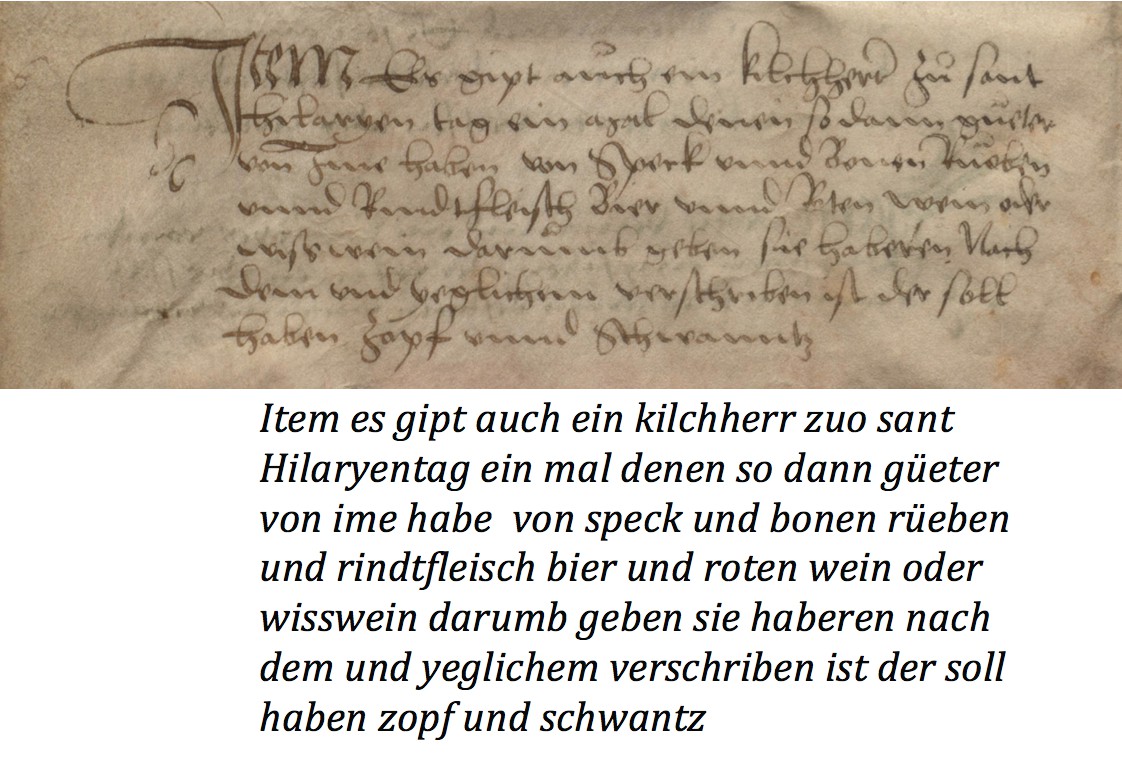 Item Es gipt auch ein kilchherr zů sant
Hilaryen tag ein mal denen so dann güeter
von Ime haben von Speck vnnd Bonen Rüeben
vnnd Rindtfleisch Bier vnnd Roten wein oder
wisswein darumb geben sie haberen Nach
dem vnd yeglichem verschriben ist der soll
haben Zopf vnnd Schwanntz
Item es gipt auch ein kilchherr zuo sant
Hilaryentag ein mal denen so dann güeter
von ime habe von speck und bonen rüeben
und rindtfleisch bier und roten wein oder
wisswein darumb geben sie haberen nach
dem und yeglichem verschriben ist der soll
haben zopf und schwantz